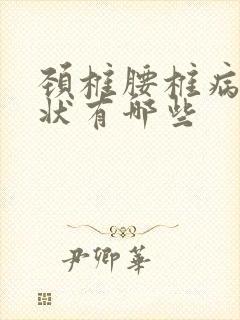 颈椎腰椎病
状有哪些
尹卿华